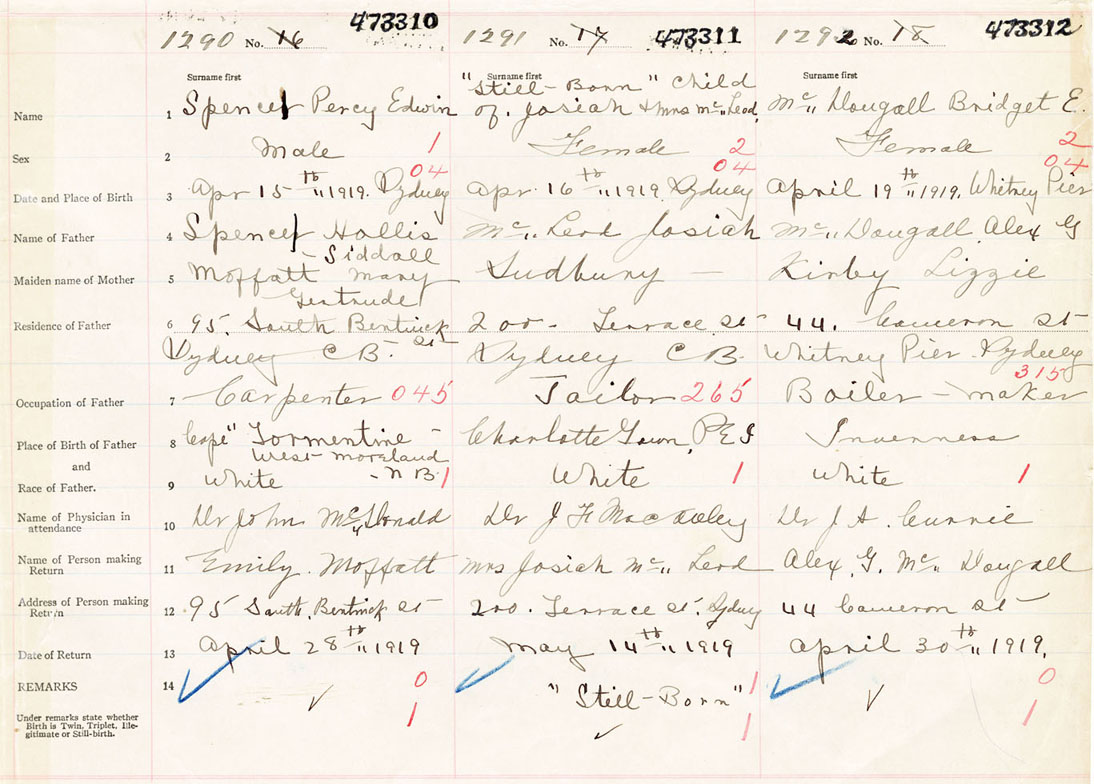 473310 473311 473312
1290 No. 16 1291 No. 17 1292 No. 18
Surname first Surname first Surname first
"Still-Born" Child
Name 1 Spencer Percy Edwin of Josiah & Mrs Mc Leod Mc Dougall Bridget E.
1 2 2
Sex 2 Male Female Female
04 04 04
Date and Place of Birth 3 Apr 15th 1919. Sydney Apr. 16th 1919 Sydney April 19th 1919, Whitney Pier
Name of Father 4 Spencer Hollis Mc Leod Josiah Mc Dougall Alex G
- Siddall
Maiden name of Mother 5 Moffatt Mary Sudbury — Kirby Lizzie
Gertrude
Residence of Father 6 95. South Bentinck St 200 - Terrace St 44. Cameron St
Sydney C B. Sydney C B. Whitney Pier Sydney
315
Occupation of Father 7 Carpenter 045 Tailor 265 Boiler - maker
Place of Birth of Father 8 Cape" Tormentine - Charlotte Town, P.E.I Inverness
and West-moreland
Race of Father. 9 White - N B. 1 White 1 White 1
Name of Physician in
attendance 10 Dr John McDonald Dr J F Dr J. A. Currie
Name of Person making
Return 11 Emily. Moffatt Mrs Josiah Mc Leod Alex. G. Mc Dougall
Address of Person making
Return 12 95 South, Bentinck St 200. Terrace St. Sydney 44 Cameron St
Date of Return 13 April 28th 1919 May 14th 1919 April 30th 1919.
REMARKS 14 0 "Still-Born" 1 0
Under remarks state whether
Birth is Twin, Triplet, Ille-
gitimate or Still-birth.
1 1 1